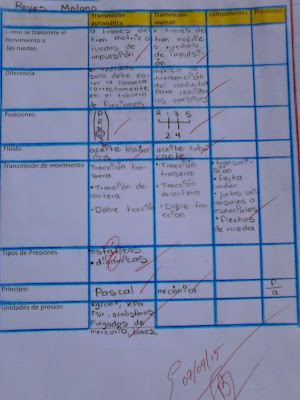 Reyes Molano
Transmisión automática
Transmisión manual
componentes
Presiones
Como se transmite el movimiento a las ruedas.
a traves del tren motriz o ruedas de impulsión
a traves del tren motriz o ruedas de impulsión
Diferencia
solo debe poner la
correctamente en el tablero de funciones
intervención del conductor para realizar los cambios
Posiciones
P
R
N
D
R 1 3 5
2 4
Fluido
aceite hidraulico
aceite lubricante
Transmisión de movimiento
Tracción trasera
• Tracción delantera
• Doble tracción
• Tracción trasera
• Tracción delantera
• Doble tracción
• transmisión
• flecha cardan
• juntas universales o espaciales
• flechas de rueda
Tipos de Presiones
estáticas
• dinámicas
Principio
Pascal
mecánica
P
a
Unidades de presión
kg/cm², KPa
PSI, atmósferas
Pulgadas de mercurio, bares.
07/09/15
B